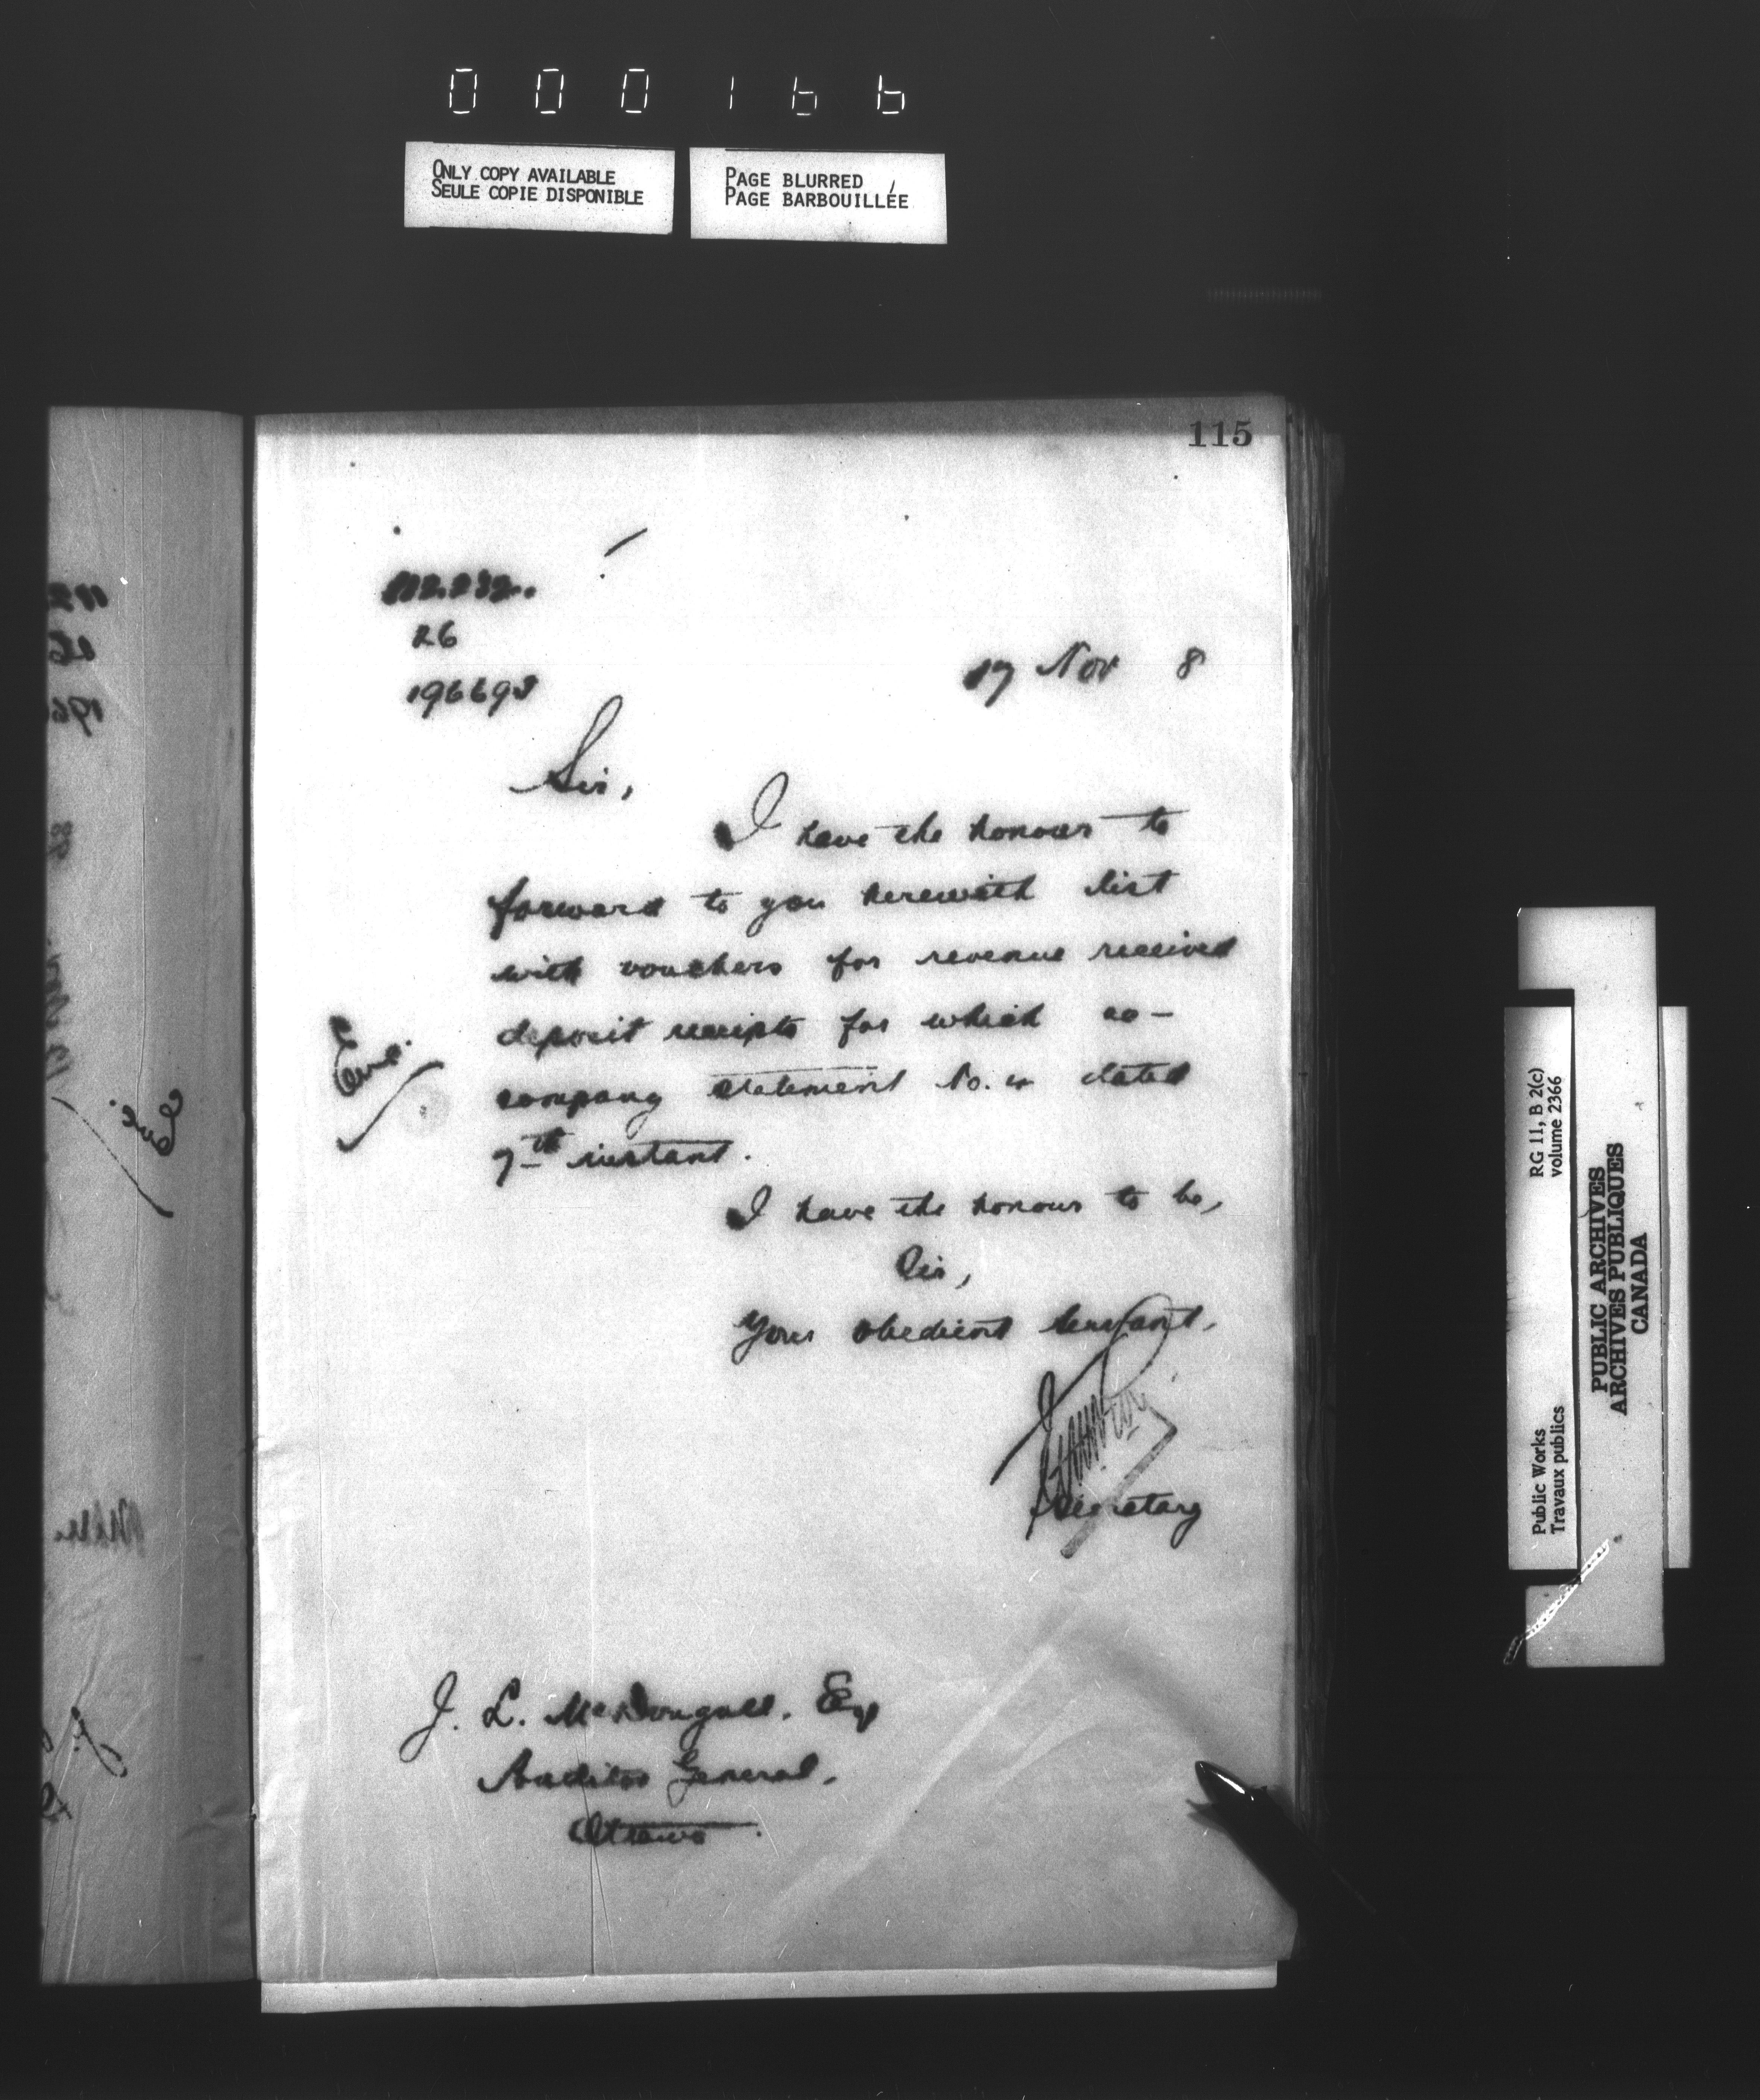 000166
ONLY COPY AVAILABLE
SEULE COPIE DISPONIBLE
PAGE BLURRED
PAGE BARBOUILLÉE
115
26
196693
17 Nov 8
Sir,
I have the honour to
forward to you herewith list
with vouchers for revenue received
deposit receipts for which ac-
Enc.
company statement No. dated
7th instant.
I have the honour to be,
Sir,
Your obedient servant,
Secretary
J. L. McDougall. Esq
Auditor General.
Ottawa.
RG 11, B 2(c)
volume 2366
Public Works
Travaux publics
PUBLIC ARCHIVES
ARCHIVES PUBLIQUES
CANADA